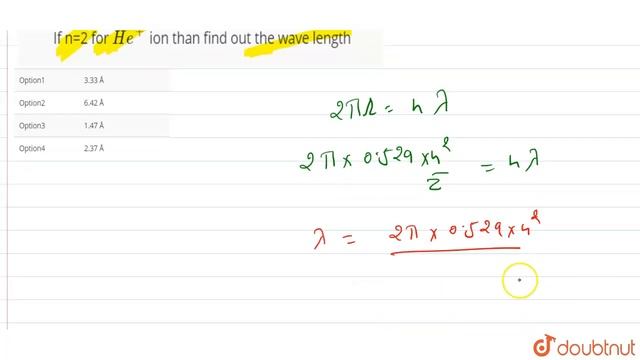 If n=2 for He⁺ ion than find out the wave length
Option1 3.33 Å
Option2 6.42 Å
Option3 1.47 Å
Option4 2.37 Å
2πr = nλ
2π × 0.529 × n²/Z = nλ
λ = 2π × 0.529 × n²
doubtnut